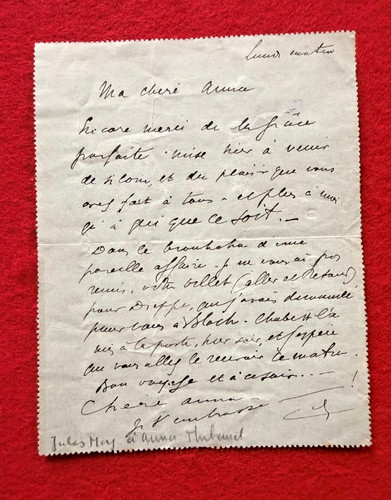 Lundi matin
Ma chère Anna
Encore merci de la grâce
parfaite mise hier à venir
de si loin, et du plaisir que vous
avez fait à tous - et plus à moi
qu'à qui que ce soit. -
Dans le brouhaha d'une
pareille affaire je ne vous ai pas
remis votre billet (aller et retour)
pour Dieppe, que j'avais demandé
pour vous à Bloch. l'a
mis à la poste, hier soir, et j'espère
que vous allez le recevoir ce matin.
Bon voyage et à ce soir... -
Chère Anna !
Je t'embrasse
Jules à Anna